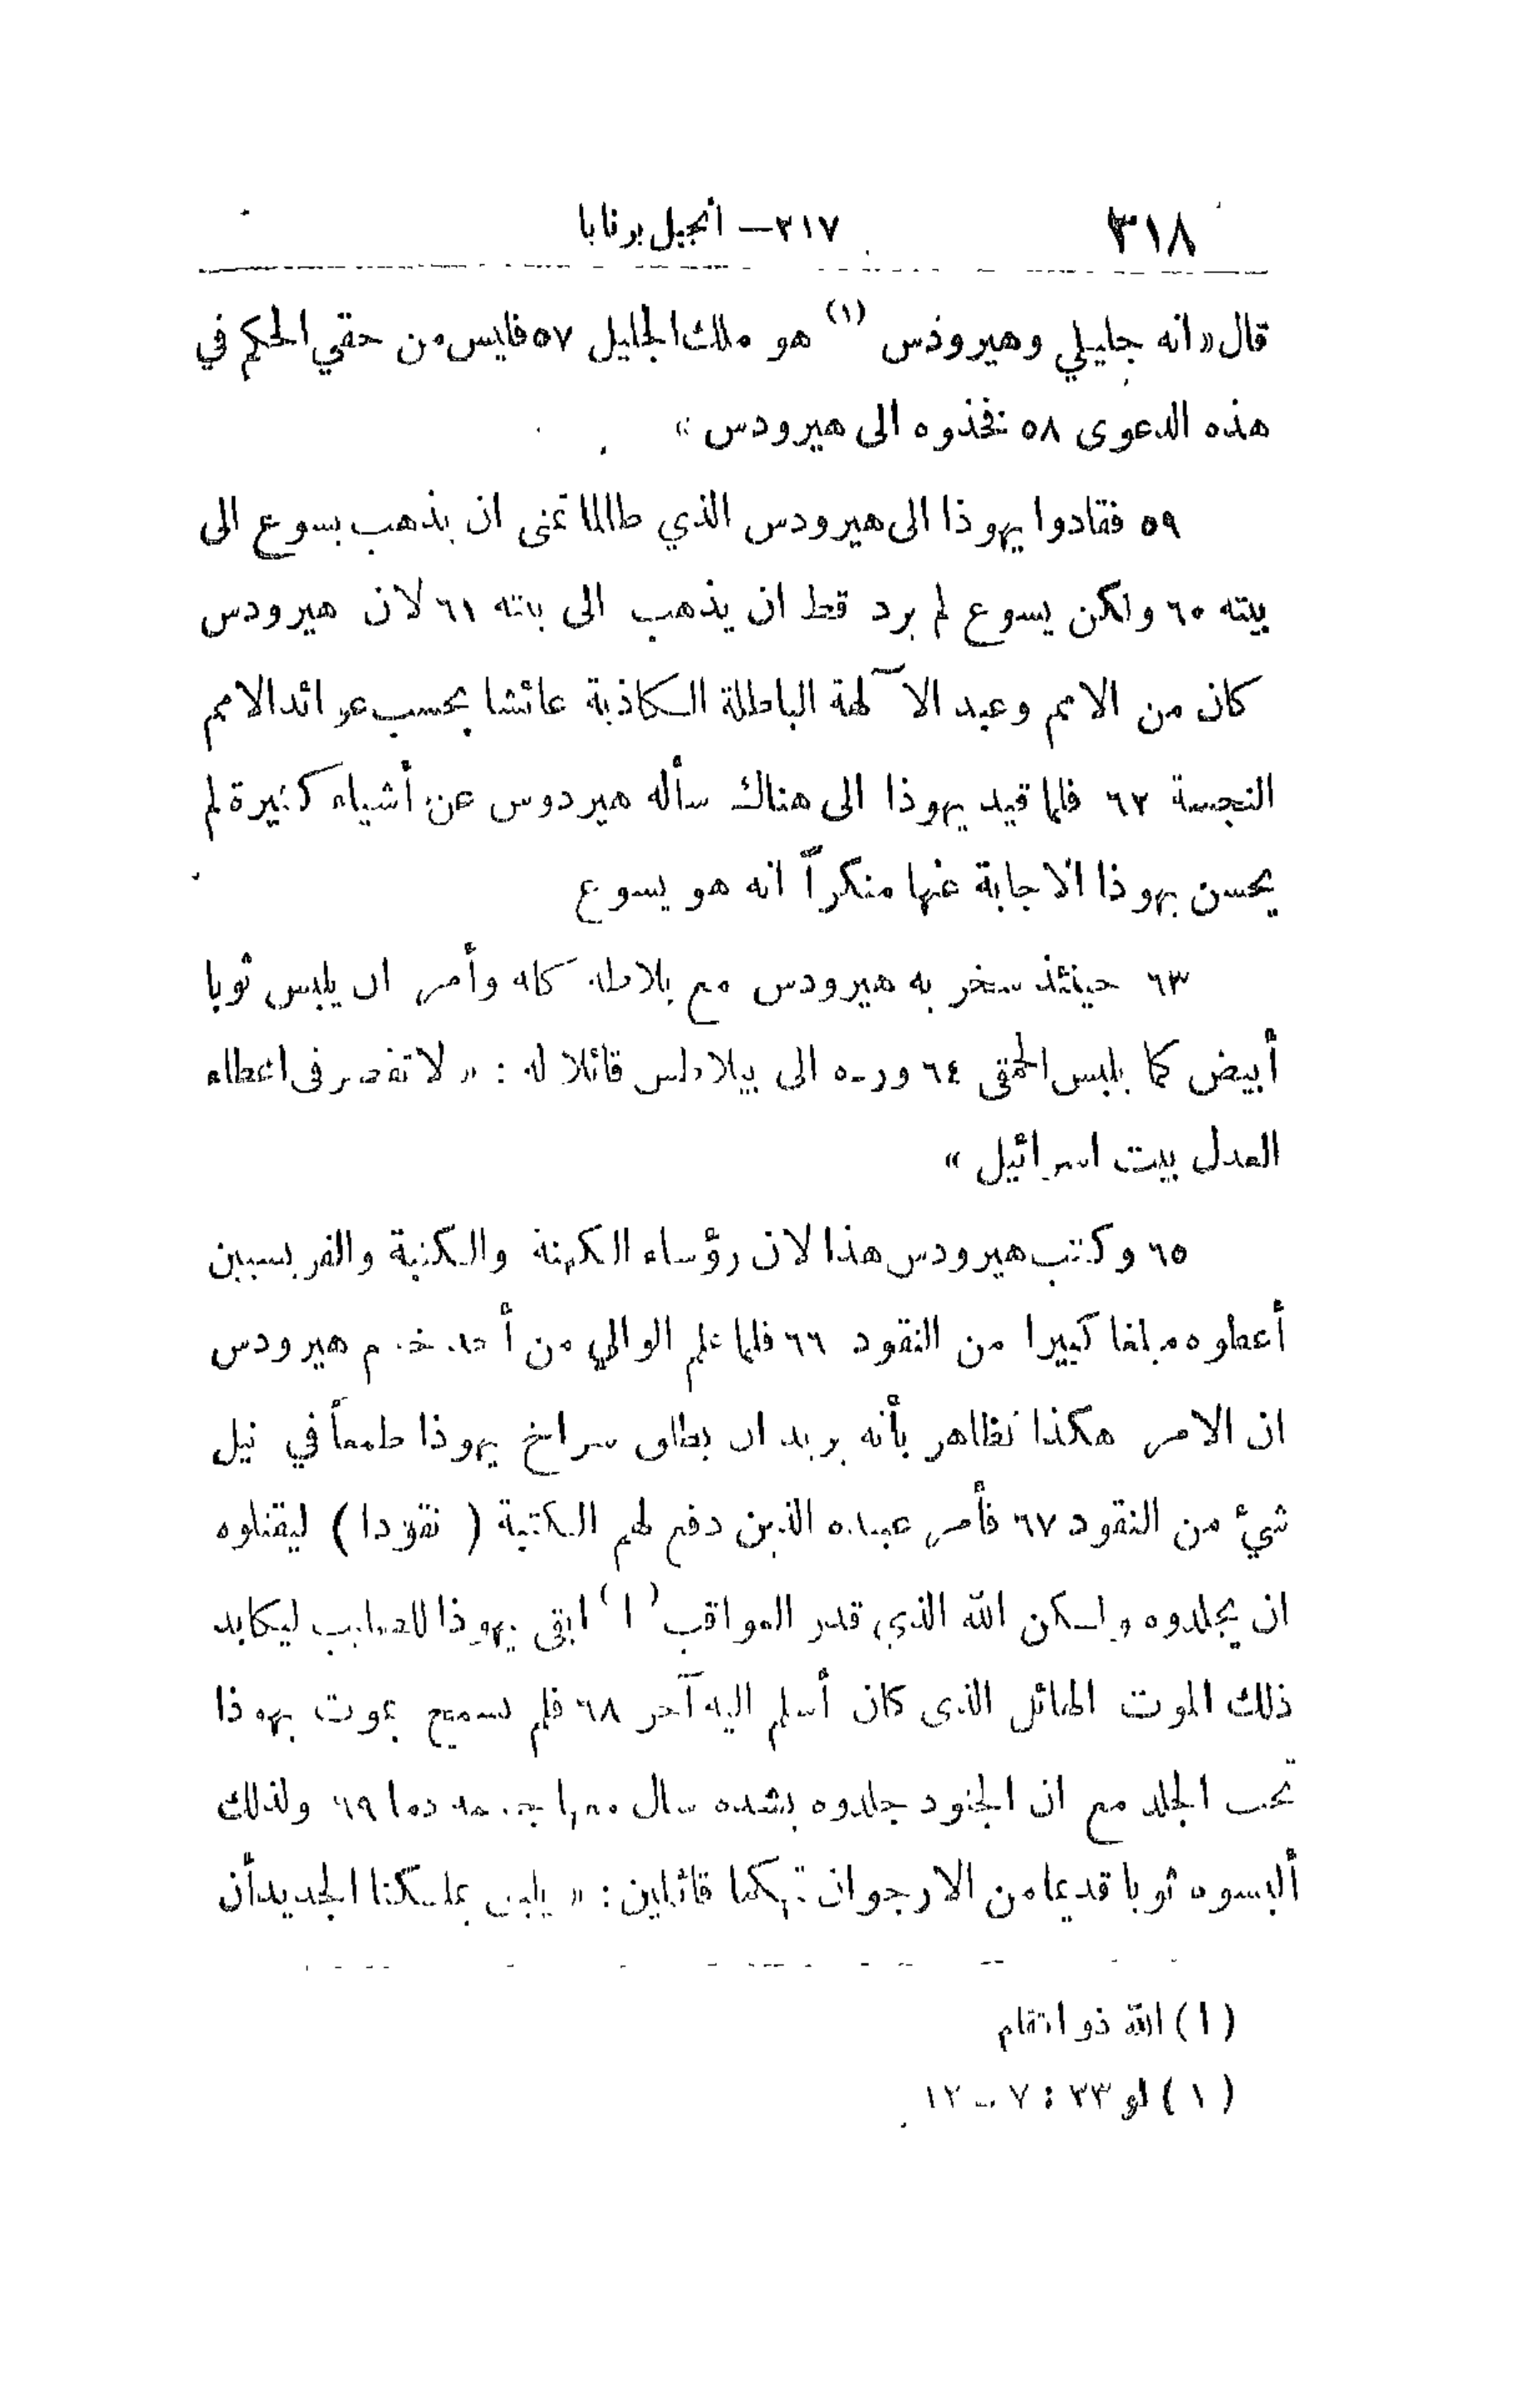 ٣١٨
٢١٧— أنجيل برنابا
قال « انه جليلي وهيرودس (١) هو ملك الجليل ٥٧ فليس من حقي الحكم في
هذه الدعوى ٥٨ فخذوه الى هيرودس »
٥٩ فقادوا يهوذا الى هيرودس الذي طالما تمنى ان يذهب يسوع الى
بيته ٦٠ ولكن يسوع لم يرد قط ان يذهب الى بيته ٦١ لان هيرودس
كان من الامم وعبد الآلهة الباطلة الكاذبة عائشا بحسب عوائد الامم
النجسة ٦٢ فلما قيد يهوذا الى هناك سأله هيردوس عن أشياء كثيرة لم
يحسن يهوذا الاجابة عنها منكراً انه هو يسوع
٦٣ حينئذ سخر به هيرودس مع بلاطه كله وأمر ان يلبس ثوبا
أبيض كما يلبس الحمقى ٦٤ ورده الى بيلاطس قائلا له : « لا تقصر في اعطاء
العدل بيت اسرائيل »
٦٥ وكتب هيرودس هذا لان رؤساء الكهنة والكتبة والفريسيين
أعطوه مبلغا كبيرا من النقود ٦٦ فلما علم الوالي من أحد خدم هيرودس
ان الامر هكذا تظاهر بأنه يريد ان يطلق سراح يهوذا طمعاً في نيل
شيء من النقود ٦٧ فأمر عبيده الذين دفع لهم الكتبة ( نقودا ) ليقتلوه
ان يجلدوه ولكن الله الذي قدر العواقب (ا) ابقى يهوذا للصليب ليكابد
ذلك الموت الهائل الذى كان أسلم اليه آخر ٦٨ فلم يسمح بموت يهوذا
تحت الجلد مع ان الجنود جلدوه بشدة سال معها جسمه دما ٦٩ ولذلك
ألبسوه ثوبا قديما من الارجوان تهكما قائلين : « يليق بملكنا الجديد أن
( ا ) الله ذو انتقام
( ١ ) لو ٢٣ : ٧ — ١٢